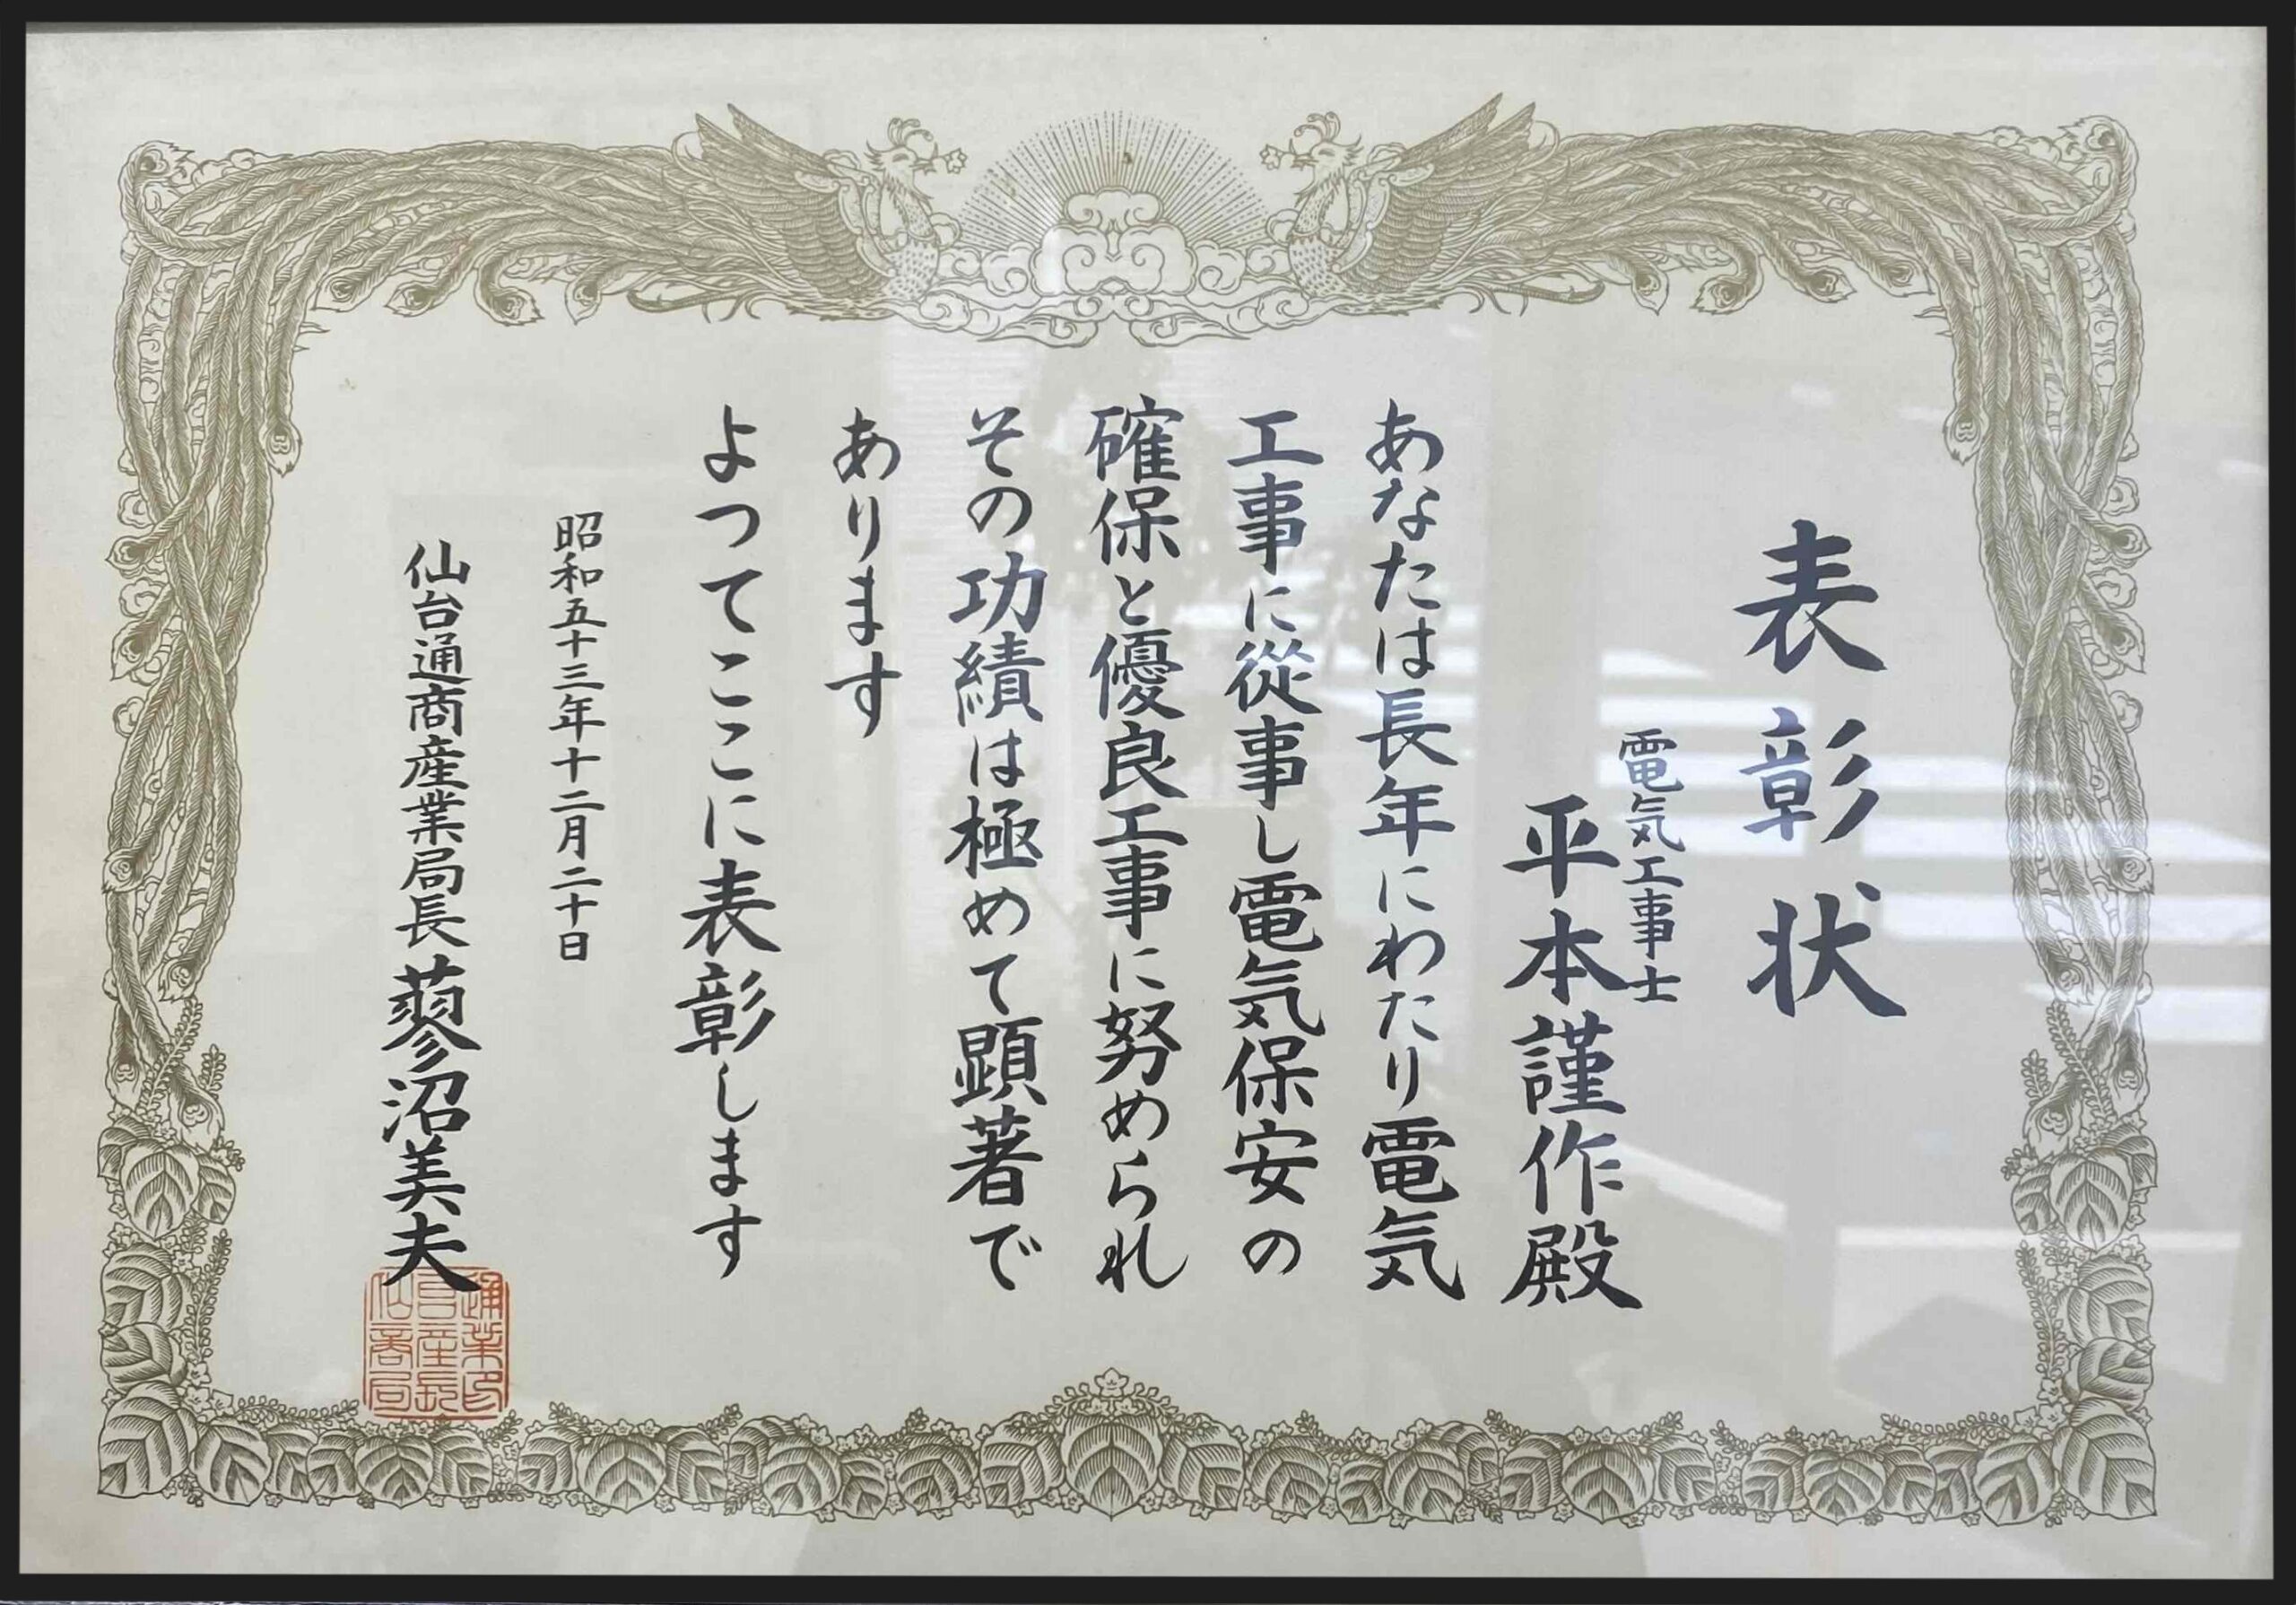 表彰状
電気工事士
平本謹作殿
あなたは長年にわたり電気
工事に従事し電気保安の
確保と優良工事に努められ
その功績は極めて顕著で
あります
よつてここに表彰します
昭和五十三年十二月二十日
仙台通商産業局長 蓼沼美夫